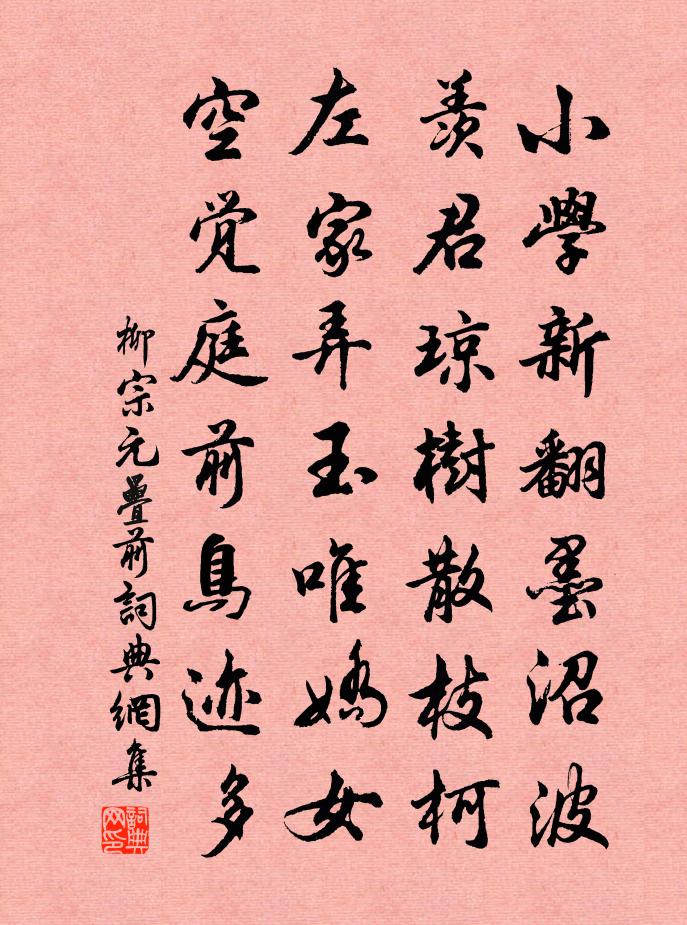 小學新翻墨沼波
羨君琼樹散枝柯
左家弄玉唯嬌女
空覚庭前鳥迹多
柳宗元疊前詞典網集
詞典网印